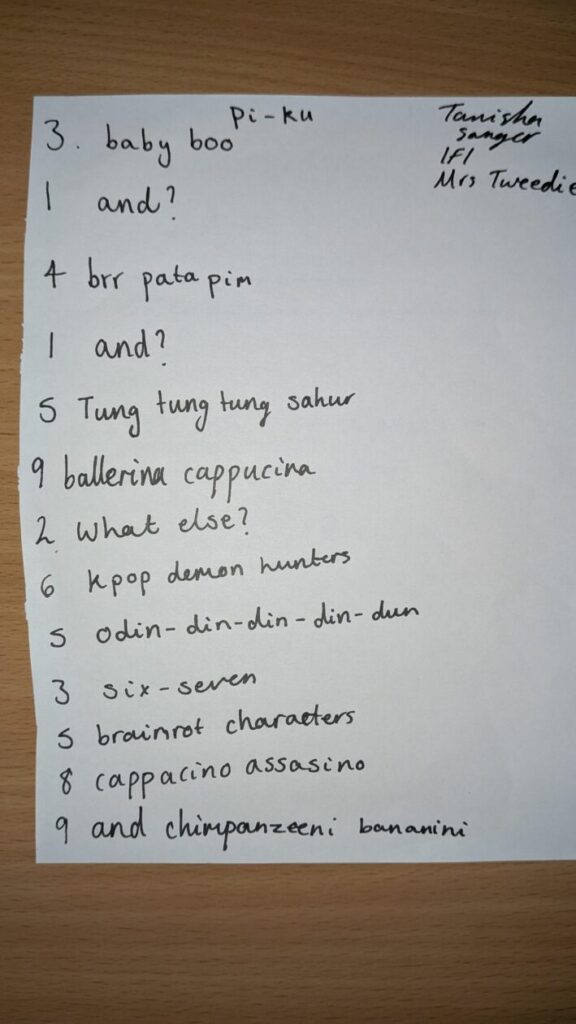 Pi-ku
Tanisha
Sanger
1F1
Mrs Tweedie
3. baby boo
1 and?
4 brr pata pim
1 and?
5 Tung tung tung sahur
9 ballerina cappucina
2 What else?
6 kpop demon hunters
5 odin-din-din-din-dun
3 six-seven
5 brainrot characters
8 cappacino assasino
9 and chimpanzeeni bananini